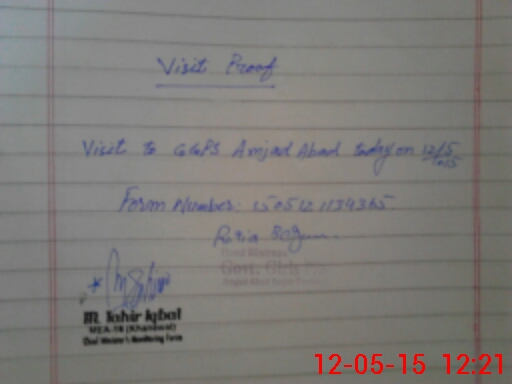 Visit Proof
Visit to GGPS Amjad Abad today on 12/5
Form Number: 150512 1134365
Razia Begum
Head Mistress
Govt. Girls
M. Tahir Iqbal
MEA-18 (Khanewal)
Chief Minister's Monitoring Force
12-05-15 12:21